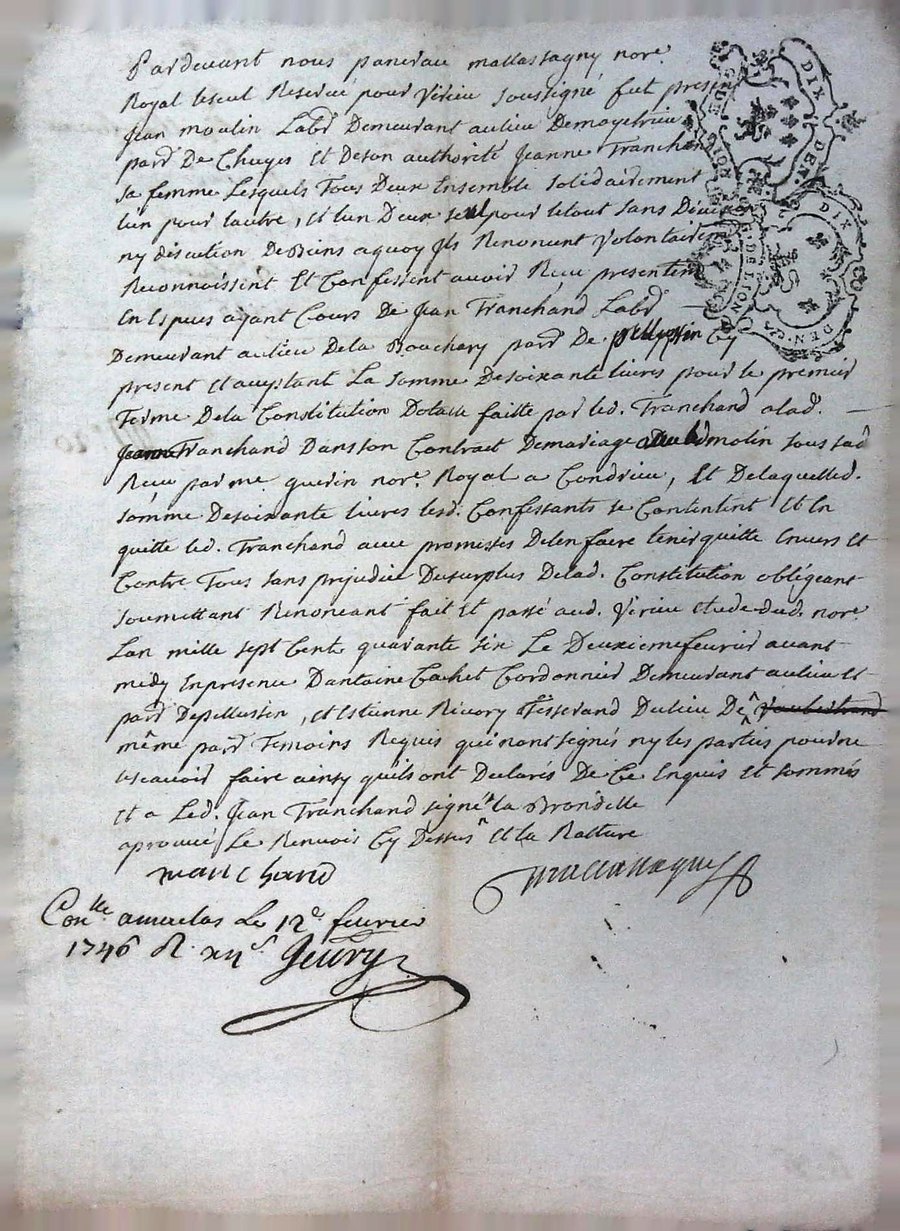 Pardevant nous pancrau mallassagny nore.
Royal leseul Reservé pour virieu soussigné fut pres
Jean moulin Labr Demeurant aulieu De
parr De Chuyes Et Deson authorité Jeanne Tranchan
Sa femme Lesquels Tous Deux Ensemble solidairement
lun pour lautre, Et lun Deux seul pour letout sans Divi
ny discution De Biens aquoy Ils Renonçent Volontaire
Reconnoissent Et Confessent avoir Reçu presentem
En Especes ayant Cours De Jean Tranchand Labr
Demeurant aulieu Dela Bouchary parr De pellussin Cy
present Et acceptant La somme Desoixante livres pour le premier
Terme Dela Constitution Dotalle faitte par led. Tranchand alad.
Jeanne Tranchand Dansson Contract Demariage molin sous
Reçu par me. guerin nore. Royal a Condrieu, Et Delaquelled.
somme Desoixante livres lesd. Confessants se Contentent Et En
quitte led. Tranchand avec promesses Delenfaire tenir quitte Envers Et
Contre Tous sans prejudice Dusurplus Delad. Constitution obligeant
soumettant Renonceant fait Et passé aud. Virieu Etude dud. nore.
Lan mille sept Cent quarante six Le Deuxieme fevrier avant
midy En presence Dantoine Cachet Cordonnier Demeurant aulieu Et
parr Depellussin, Et Estienne Rivory Tisserand Dulieu De
même parr Temoins Requis qui nont signés ny les parties pour ne
lesçavoir faire ainsy quils ont Declarés De Ce Enquis Et sommés
Et a Led. Jean Tranchand signé la Brondelle
aprouvé Le Renvois Cy Dessus Et la Ratture
Conlle. le 12e. fevrier
1746 R. xiis.
DIX DEN.
G. DE LION
DIX DEN.
G. DE LION